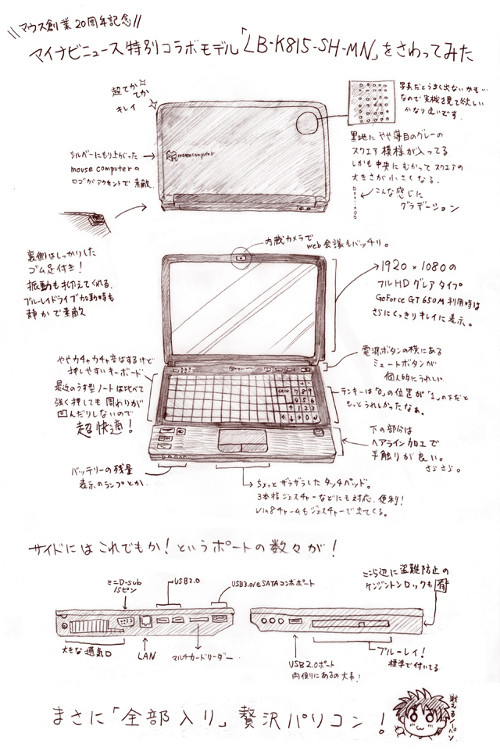 \\マウス創業20周年記念//
マイナビニュース特別コラボモデル「LB-K815-SH-MN」をさわってみた
超てか
てか
キレイ
写真だとうまく出ないかも…
なので実機を見て欲しい
かなり近いです。
シルバーにもり上がった
mouse computerの
ロゴがアクセントで素敵
mouse computer
黒地にやや薄目のグレーの
スクエア模様が入ってる
しかも中央にむかってスクエアの
大きさが小さくなる。
こんな感じに
グラデーション
裏側はしっかりした
ゴム足付き!
振動も抑えてくれる。
ブルーレイドライブ加動時も
静かで素敵
内蔵カメラで
web会議もバッチリ。
1920×1080の
フルHDグレアタイプ
GeForce GT 650M利用時は
さらにくっきりキレイに表示。
ややカチャカチャ音はするけど
押しやすいキーボード。
最近のうす型ノートに比べて
強く押しても周わりが
凹んだりしないので
超快適!
電源ボタンの横にある
ミュートボタンが
個人的にうれしい
テンキーは「0」の位置が「1」の下だと
もっとうれしかったなぁ。
下の部分は
ヘアライン加工で
手触りが良い。
さらさら。
バッテリーの残量
表示のランプとか
ちょっとザラザラしたタッチパッド。
3本指ジェスチャーなどにも対応。便利!
Win8チャームもジェスチャーで出てくる。
サイドにはこれでもか!というポートの数々が!
ミニD-sub
15ピン
USB2.0
USB3.0/eSATAコンボポート
こちら辺に盗難防止の
ケンジントンロックも有
大きな通気口
LAN
マルチカードリーダー
USB2.0ポート
内側にあるの大事!
ブルーレイ!
標準で付いてる
まさに「全部入り」贅沢パソコン!